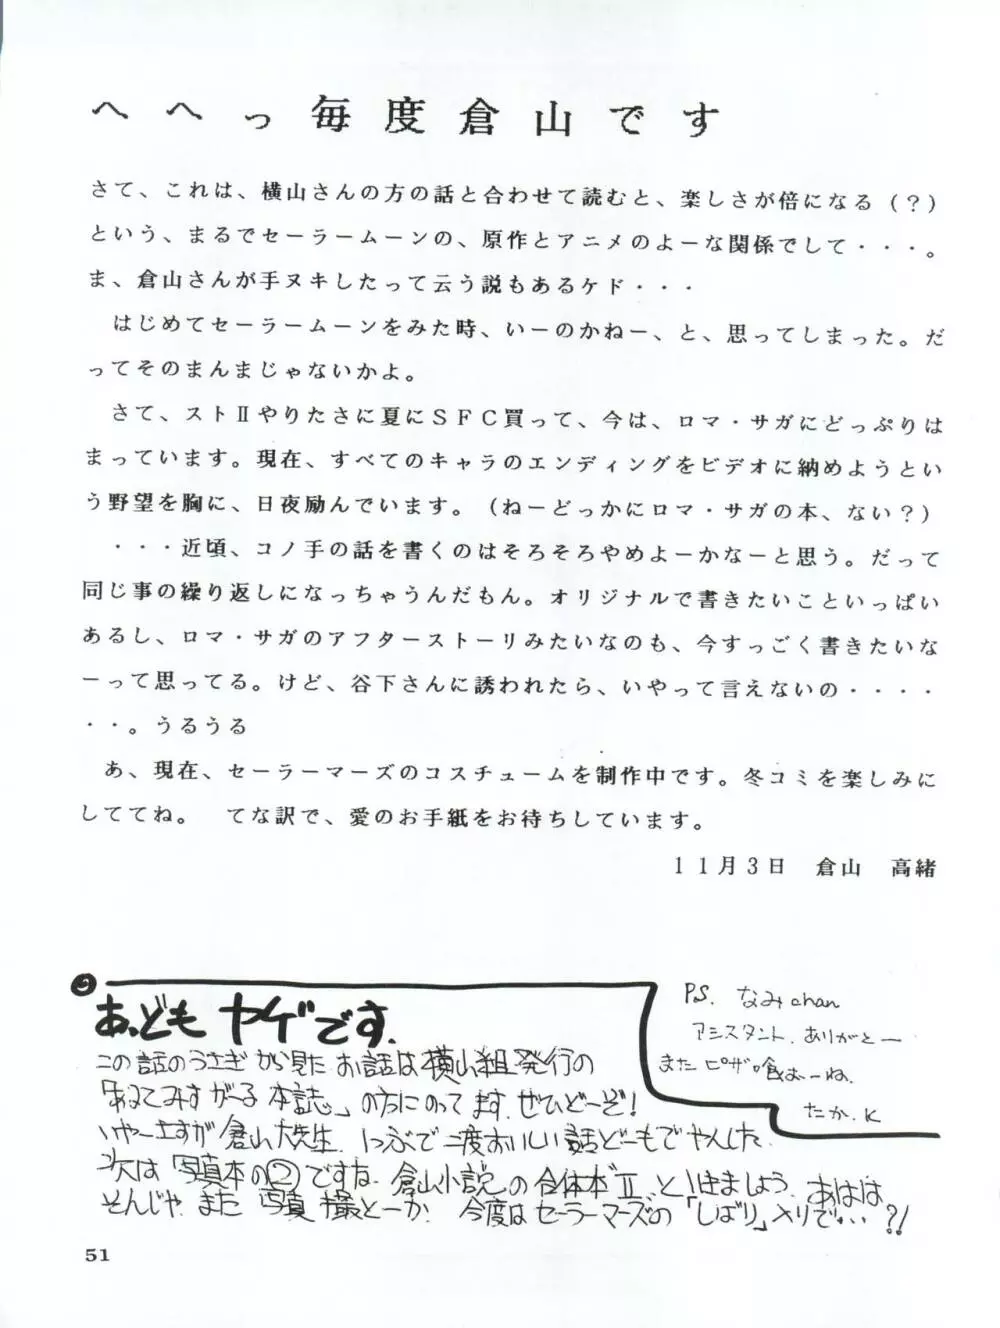 へへっ毎度倉山です
さて、これは、横山さんの方の話と合わせて読むと、楽しさが倍になる（？）
という、まるでセーラームーンの、原作とアニメのよーな関係でして・・・。
ま、倉山さんが手ヌキしたって云う説もあるケド・・・
はじめてセーラームーンをみた時、いーのかねー、と、思ってしまった。だ
ってそのまんまじゃないかよ。
さて、ストⅡやりたさに夏にＳＦＣ買って、今は、ロマ・サガにどっぷりは
まっています。現在、すべてのキャラのエンディングをビデオに納めようとい
う野望を胸に、日夜励んでいます。（ねーどっかにロマ・サガの本、ない？）
・・・近頃、コノ手の話を書くのはそろそろやめよーかなーと思う。だって
同じ事の繰り返しになっちゃうんだもん。オリジナルで書きたいこといっぱい
あるし、ロマ・サガのアフターストーリみたいなのも、今すっごく書きたいな
ーって思ってる。けど、谷下さんに誘われたら、いやって言えないの・・・・
・・。うるうる
あ、現在、セーラーマーズのコスチュームを制作中です。冬コミを楽しみに
しててね。　てな訳で、愛のお手紙をお待ちしています。
１１月３日　倉山　高緒
あ、ども ヤゲです.
この話のうさぎから見たお話は横山組発行の
の方にのってます.ぜひどーぞ!
いやーさすが倉山大先生.1つぶで二度おいしい話どーもでやんした.
次は「写真本の②」ですね.倉山小説の合体本Ⅱ、といきましょう.あはは
そんじゃ.また写真撮とーか.今度はセーラーマーズの「しばり」入りで・・・?!
P.S. なみchan
アシスタント.ありがとー
また ピザ喰おーね.
たか.K
51